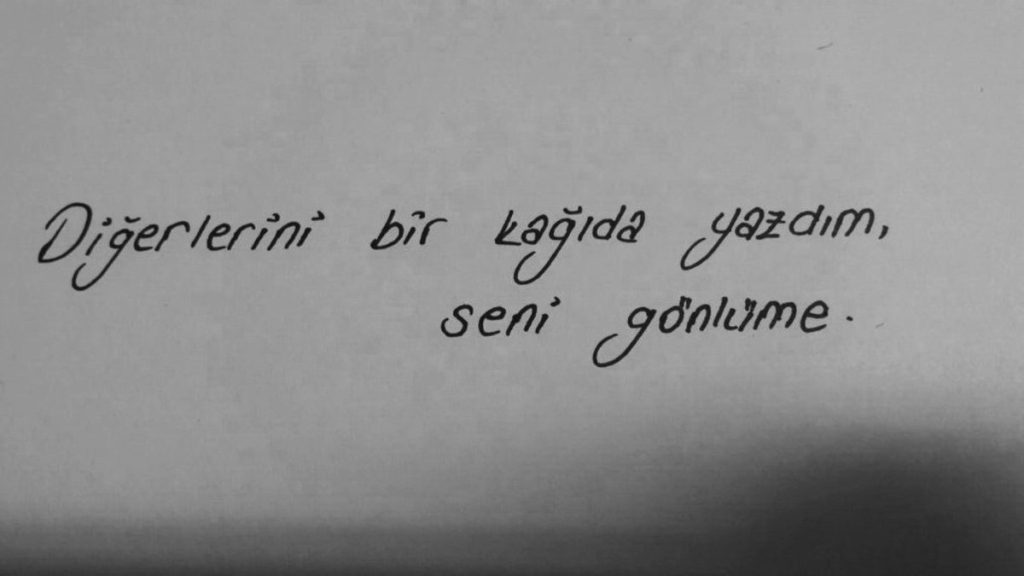 Diğerlerini bir kağıda yazdım,
seni gönlüme.